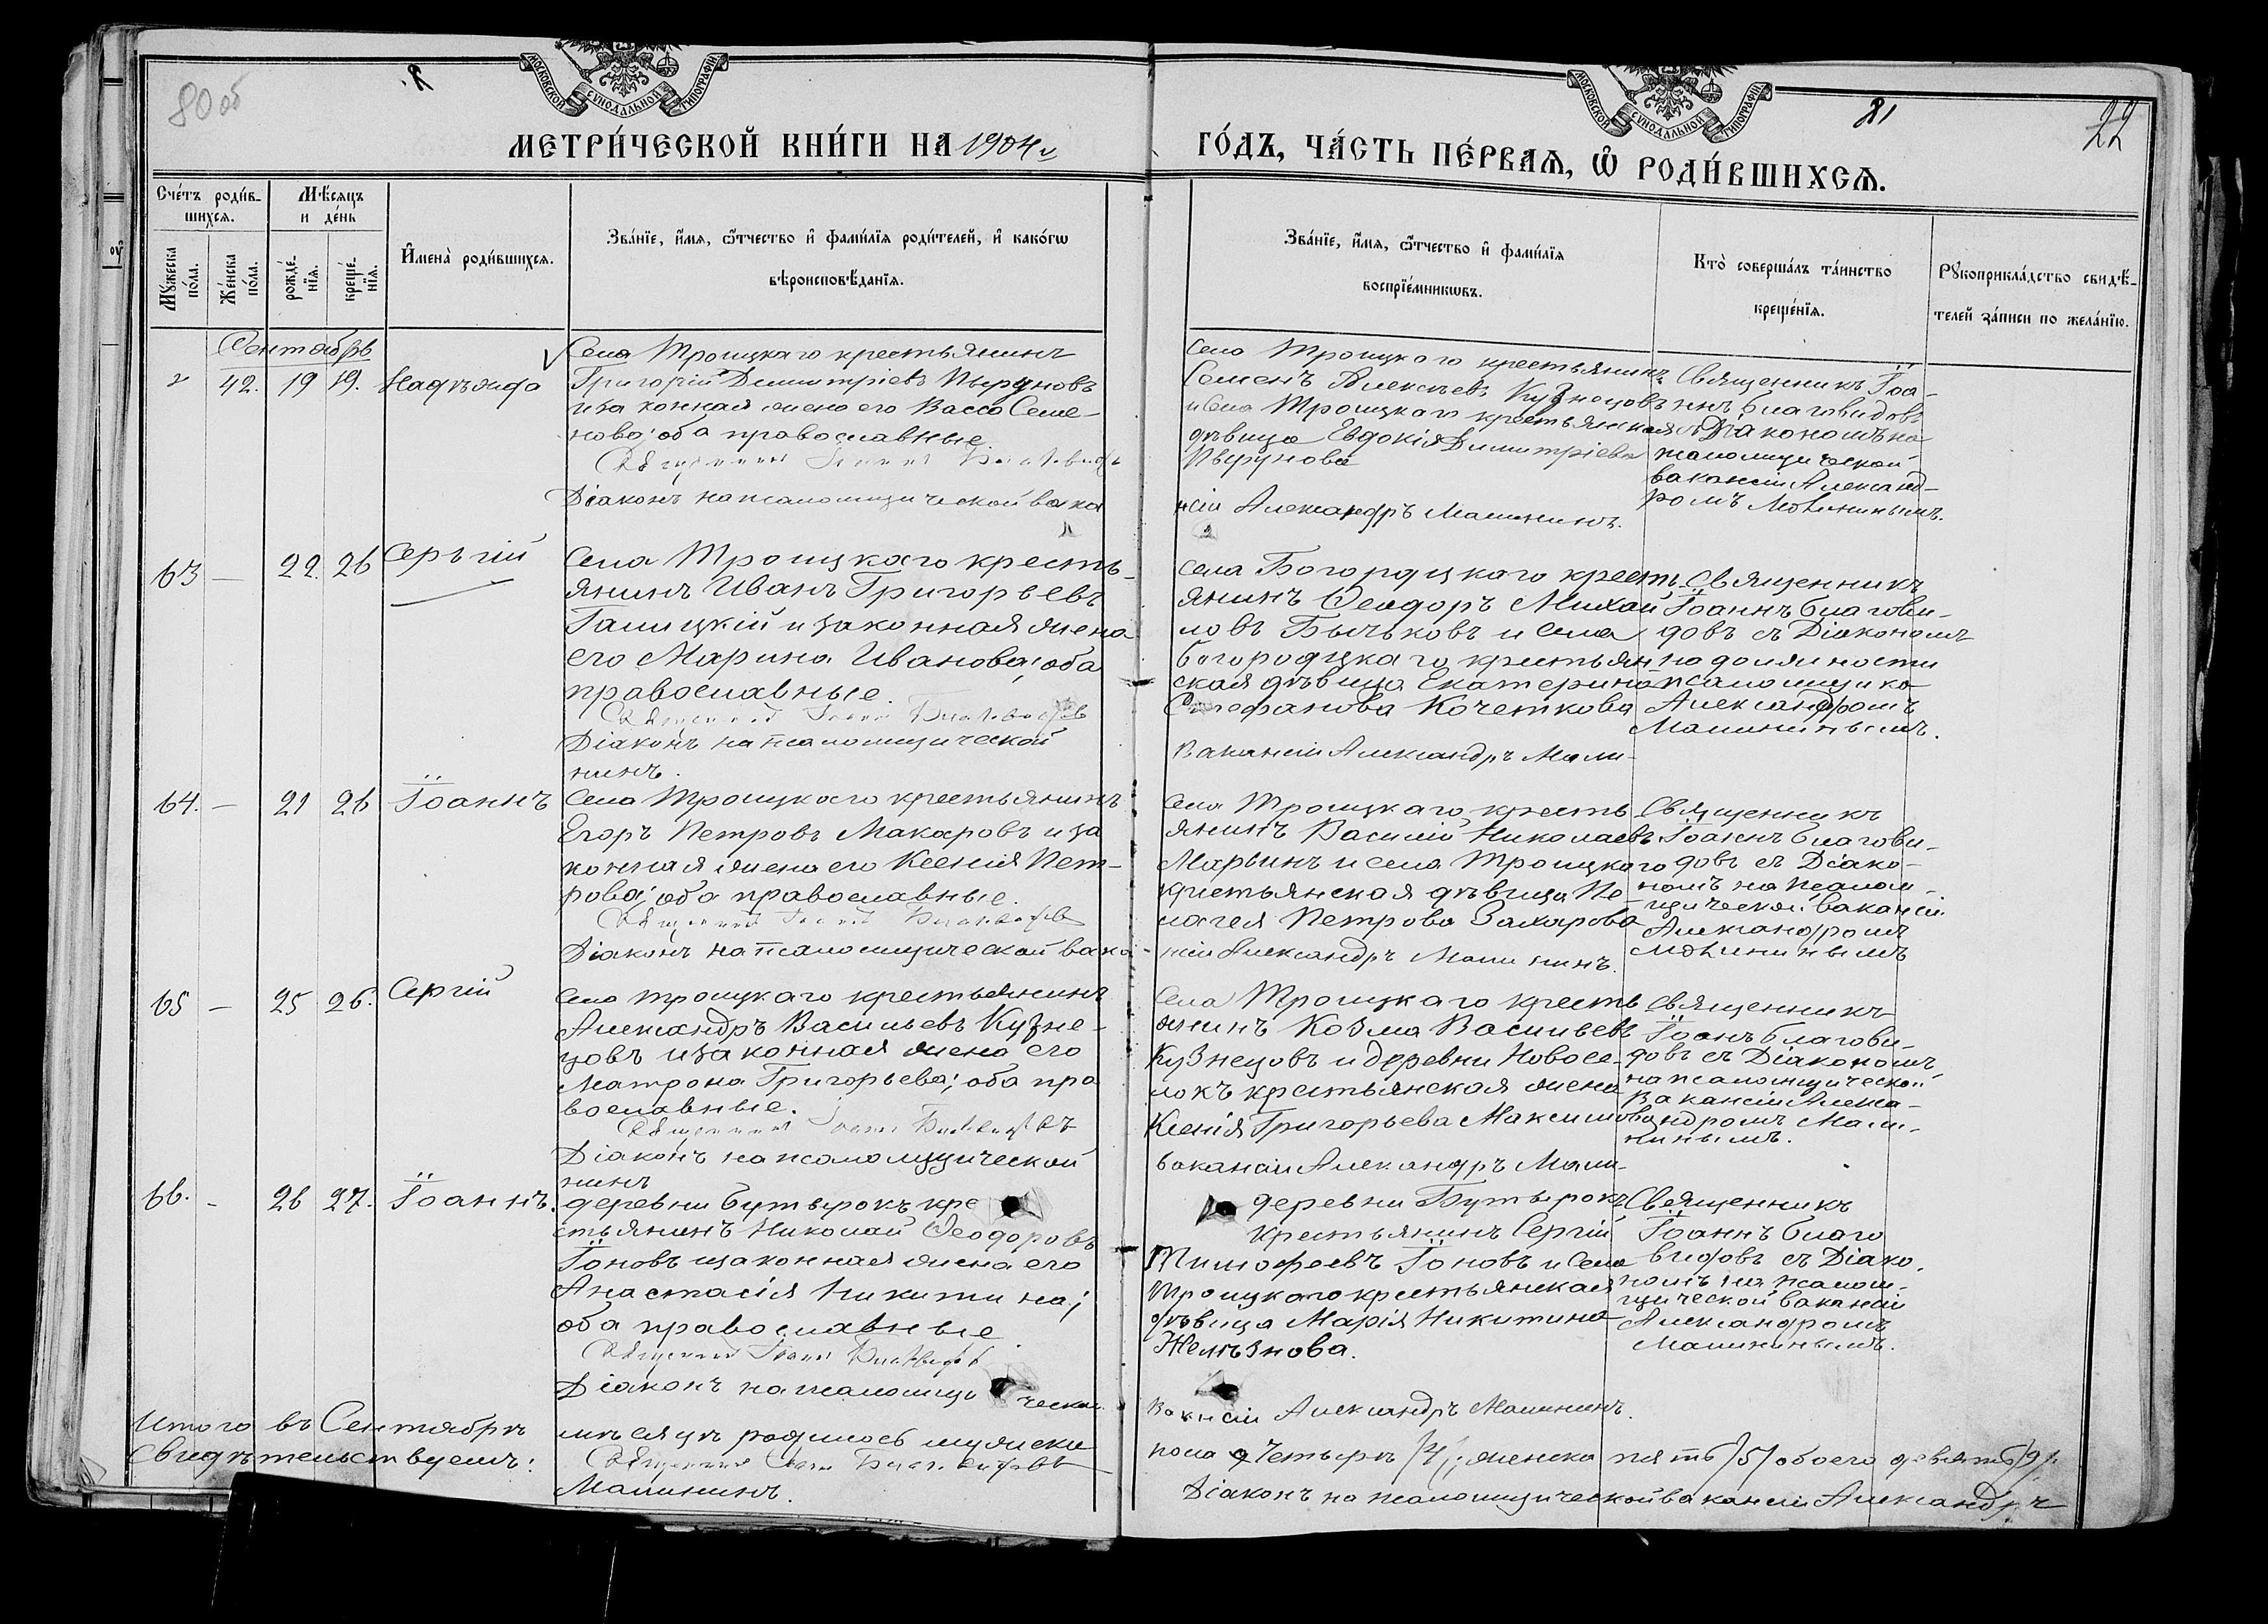 80 об
81
22
МОСКОВСКОЙ СѴНОДАЛЬНОЙ ТИПОГРАФІИ
МОСКОВСКОЙ СѴНОДАЛЬНОЙ ТИПОГРАФІИ
МЕТРИ́ЧЕСКОЙ КНИ́ГИ НА 1904 г
ГО́ДЪ, ЧА́СТЬ ПЕ́РВАѦ, Ѡ РОДИ́ВШИХСѦ.
Сче́тъ роди́в-
шихсѧ.
Мѣ́сѧцъ
и де́нь
Мꙋ́жеска по́ла.
Же́нска по́ла.
рожде́-
нїѧ.
креще́-
нїѧ.
И҆мена̀ роди́вшихсѧ.
Зва́нїе, и҆́мѧ, ѻ҆́тчество и҆ фами́лїѧ роди́телей, и҆ како́гѡ
вѣроисповѣ́данїѧ.
Зва́нїе, и҆́мѧ, ѻ҆́тчество и҆ фами́лїѧ
воспрїе́мникѡвъ.
Кто̀ соверша́лъ та́инство
креще́нїѧ.
Рꙋкоприкла́дство свидѣ́-
телей за́писи по жела́нїю.
Сентябрь
42. 19 19. Надѣжда
Села Троицкаго крестьянинъ
Григорій Димитріевъ Пыруновъ
и законная жена его Васса Семе-
нова; оба православные.
Священникъ Іоаннъ Благовидовъ
Діаконъ на псаломщической вака
Села Троицкаго крестьянинъ
Семенъ Алексѣевъ Кузнецовъ
и села Троицкаго крестьянская
дѣвица Евдокія Димитріева
Пырунова
нсіи Александръ Малининъ.
Священникъ Іоа-
ннъ Благовидовъ
съ Діакономъ на
псаломщической
вакансіи Александ-
ромъ Малининымъ.
63 — 22. 26 Сергій
Села Троицкаго кресть-
янинъ Иванъ Григорьевъ
Галицкій и законная жена
его Марина Иванова; оба
православные.
Священникъ Іоаннъ Благовидовъ
Діаконъ на псаломщической
нинъ.
Села Богородцкаго кресть-
янинъ Ѳеодоръ Михай-
ловъ Бычковъ и села
Богородцкаго крестьян
ская дѣвица Екатерина
Стефанова Кочеткова
Вакансіи Александръ Мали-
Священникъ
Іоаннъ Благови-
довъ съ Діакономъ
на должности
псаломщика
Александромъ
Малининымъ.
64. — 21 26 Іоаннъ
Села Троицкаго крестьянинъ
Егоръ Петровъ Макаровъ и за
конная жена его Ксенія Пет-
рова; оба православные.
Священникъ Іоаннъ Благовидовъ
Діаконъ на псаломщической вака-
Села Троицкаго кресть-
янинъ Василій Николаевъ
Марьинъ и села Троицкаго
крестьянская дѣвица Пе-
лагея Петрова Захарова
нсіи Александръ Малининъ.
Священникъ
Іоаннъ Благови-
довъ съ Діако-
номъ на псалом-
щической вакансіи
Александромъ
Малининымъ
65 — 25 26. Сергій
Села Троицкаго крестьянинъ
Александръ Васильевъ Кузне-
цовъ и законная жена его
Матрона Григорьева; оба пра
вославные.
Священникъ Іоаннъ Благовидовъ
Діаконъ на псаломщической
нинъ
Села Троицкаго кресть
янинъ Козма Васильевъ
Кузнецовъ и деревни Новосе-
локъ крестьянская жена
Ксенія Григорьева Максимова
вакансіи Александръ Мали-
Священникъ
Іоанъ Благови-
довъ съ Діакономъ
на псаломщической
Вакансіи Алекса-
ндромъ Мали-
нинымъ.
66. - 26 27. Іоаннъ.
деревни Бутырокъ кре
стьянинъ Николай Ѳеодоровъ
Іоновъ и законная жена его
Анастасія Никитина;
оба православные.
Священникъ Іоаннъ Благовидовъ
Діаконъ на псаломщической
деревни Бутырокъ
крестьянинъ Сергій
Тимофеевъ Іоновъ и села
Троицкаго крестьянская
дѣвица Марія Никитина
Желѣзнова.
Вакансіи Александръ Малининъ.
Священникъ
Іоаннъ Благо
видовъ съ Діако-
номъ на псалом-
щической вакансіи
Александромъ
Малининымъ.
Итого въ Сентябрѣ мѣсяцѣ родилось мужска пола четырѣ /4/; женска пять /5/ обоего девять /9/.
Свидѣтельствуемъ: Священникъ Іоаннъ Благовидовъ Діаконъ на псаломщической вакансіи Александръ
Малининъ.